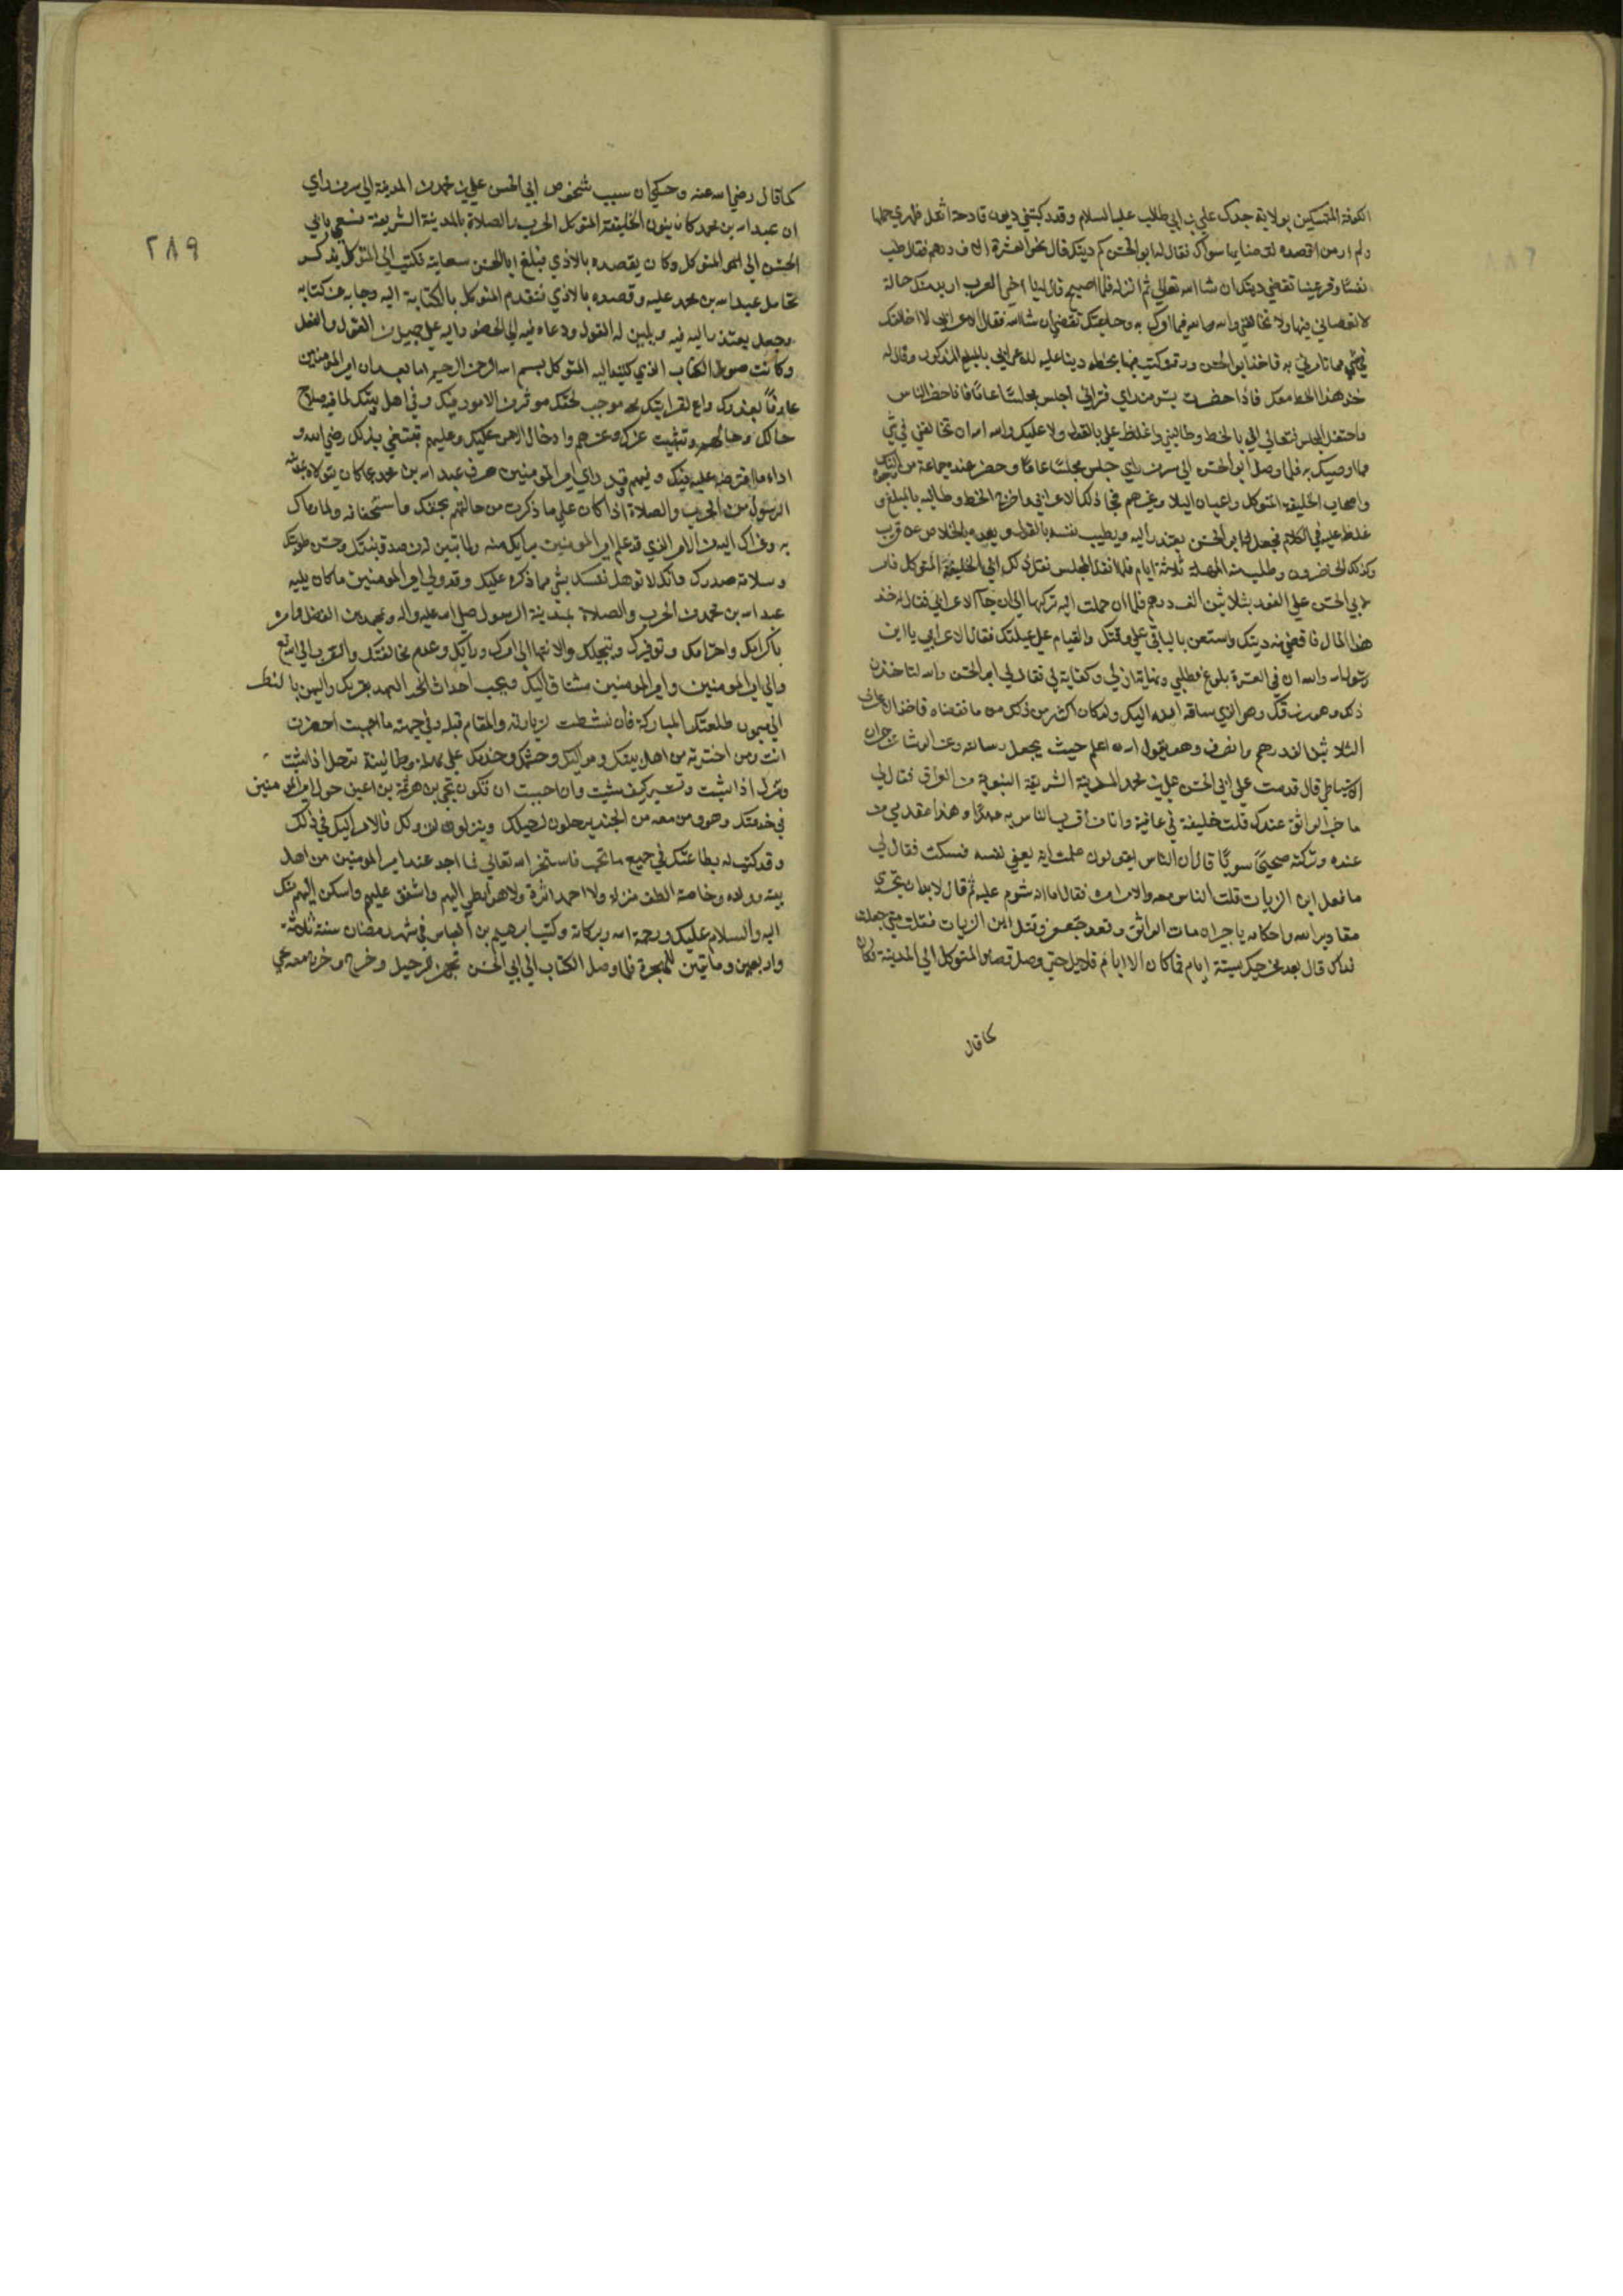 الكوفة المتمسكين بولاية جدك علي بن ابي طالب عليه السلام وقد ركبتني ديون فادحة اثقل ظهري حملها
ولم ار من اقصده لقضايها سواك فقال له ابو الحسن كم دينك فقال نحو العشرة الاف درهم فقال طب
نفسا وقر عينا تقضي دينك ان شا الله تعالى ثم انزله فلما اصبح قال له يا اخي العرب اريد منك حاجة
لا تعصاني فيها ولا تخالفني والله والله فيما امرك به وحاجتك تقضي ان شا الله فقال الاعرابي لا اخالفك
في شي مما تامرني به فاخذ ابو الحسن ورقة وكتب فيها بخطه دينا عليه للاعرابي بالمبلغ المذكور وقال له
خذ هذا الخط معك فاذا حضرت سر من راي فتراني اجلس مجلسا عاما فاذا حضر الناس
واحتفل المجلس فتعال الي بالخط وطالبني واغلظ علي بالقول ولا عليك والله الله ان تخالفني في شي
مما اوصيك به فلما وصل ابو الحسن الى سر من راي جلس مجلسا عاما وحضر عنده جماعة من
واصحاب الخليفة المتوكل واعيان البلد وغيرهم فجا ذلك الاعرابي واخرج الخط وطالبه بالمبلغ و
غلظ عليه في الكلام فجعل ابو الحسن يعتذر اليه ويطيب نفسه بالقول ويعده بالخلاص عن قريب
وكذلك الحاضرون وطلب منه المهلة ثلاثة ايام فلما انفك المجلس نقل ذلك الى الخليفة المتوكل فامر
لابي الحسن على الفور بثلاثين الف درهم فلما ان حملت اليه تركها الى ان جا الاعرابي فقال له خذ
هذا المال فاقض منه دينك واستعن بالباقي على وقتك والقيام على عيلتك فقال الاعرابي يا ابن
رسول الله والله ان في العشرة بلوغ مطلبي ونهاية اربي وكفاية لي فقال ابو الحسن والله لتاخذن
ذلك وهو رزقك وهو الذي ساقه الله اليك ولو كان اكثر من ذلك ما نقصناه فاخذ الاعرابي
الثلاثين الف درهم وانصرف وهو يقول الله اعلم حيث يجعل رسالته
الاسباطي قال قدمت على ابي الحسن علي بن محمد المدينة الشريفة النبوية من العراق فقال لي
ما خبر الواثق عندك قلت خليفة في عافية وانا من اقرب الناس به عهدا وهذا مقدمي من
عنده وتركته صحيحا سويا قال ان الناس يقولون مات لنه يعني نفسه فسكت فقال لي
ما فعل ابن الزيات قلت الناس معه والامر امره فقال اما انه شوم عليه ثم قال لا بد ان تجري
مقادير الله واحكامه يا جيران مات الواثق وقعد جعفر وقتل ابن الزيات فقلت متى جعلت
فداك قال بعد مخرجك بستة ايام فما كان الا ايام قلايل حتى وصل قصاد المتوكل الى المدينة فكان
كما قال
٢٨٩
كما قال رضي الله عنه وحكي ان سبب شخوص ابي الحسن علي بن محمد من المدينة الى سر من راي
ان عبد الله بن محمد كان ينوب الخليفة المتوكل الحرب والصلاة بالمدينة الشريفة فسعى بابي
الحسن الى المتوكل وكان يقصده بالاذي فبلغ ابا الحسن سعايته فكتب الى المتوكل يذكر
تحامل عبد الله بن محمد عليه وقصده بالاذي فتقدم المتوكل بالكتابة اليه وجابه عن كتابه
وجعل يعتذر اليه فيه ويلين له القول ودعاه فيه الى الحضور اليه على جميل من القول والفعل
وكانت صورة الكتاب الذي كتبه اليه المتوكل بسم الله الرحمن الرحيم اما بعد ان امير المومنين
عارفا بقدرك راع لقرابتك موجب لحقك موثر من الامور فيك وفي اهل بيتك لما فيه صلاح
حالك وحالهم وتثبيت عزك وعزهم وادخال الامن عليك وعليهم يبتغي بذلك رضي الله و
اداء ما افترضه عليه فيك وفيهم وقد راي امير المومنين صرف عبد الله بن محمد عما كان يتولاه
الرسول من الحرب والصلاة اذا كان على ما ذكرت من جهالتهم بحقك واستخفافه ولما رماك
به وعزاك اليه من الامر الذي قد علم امير المومنين براتك منه ولما تبين من صدق نيتك وحسن طويتك
وسلامة صدرك وانك لا توهل نفسك بشي مما ذكره عليك وقد ولي امير المومنين ما كان يليه
عبد الله بن محمد من الحرب والصلاة بمدينة الرسول صلى الله عليه واله ومحمد بن الفضل وامره
باكرامك واحترامك وتوقيرك وتبجيلك والانتها الى امرك ورايك وعدم مخالفتك والتقرب الى الله
والى امير المومنين وامير المومنين مشتاق اليك ويحب احداث العهد بقربك واليمن بالنظر
الى ميمون طلعتك المباركة فان نشطت لزيارته والمقام قبله وفي جهته ما احببت احضرت
انت ومن اخترته من اهل بيتك ومواليك وحشمك وخدمك على مهلة وطمانينة ترحل اذا شيت
وتنزل اذا شيت وتسير كيف شيت وان احببت ان تكون يحيى بن هرثمة بن اعين مولى امير المومنين
في خدمتك وهو ومن معه من الجند يرحلون لرحيلك وينزلون لنزولك فالامر اليك في ذلك
وقد كتب له بطاعتك في جميع ما تحب فاستخر الله تعالى فما احد عند امير المومنين من اهل
بيته وولده وخاصته الطف منزلة ولا احمد اثرة ولا هو انظر اليهم واشفق عليهم واسكن اليهم منك
اليه والسلام عليك ورحمة الله وبركاته وكتب ابرهيم بن العباس في شهر رمضان سنة ثلاثة
واربعين ومايتين للهجرة فلما وصل الكتاب الى ابي الحسن تجهز للرحيل وخرج وخرج معه يحيى